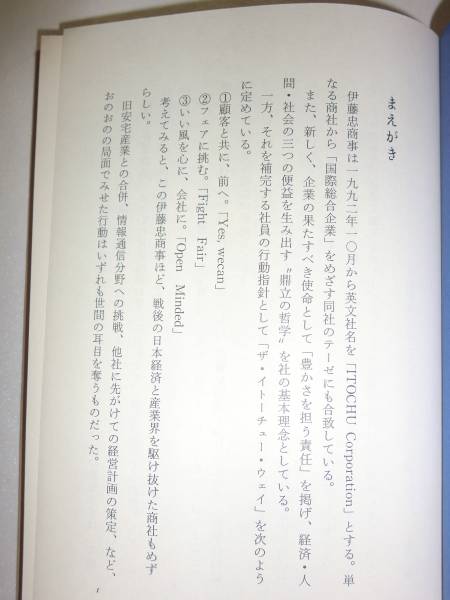 まえがき
伊藤忠商事は一九九二年一〇月から英文社名を「ITOCHU Corporation」とする。単
なる商社から「国際総合企業」をめざす同社のテーゼにも合致している。
また、新しく、企業の果たすべき使命として「豊かさを担う責任」を掲げ、経済・人
間・社会の三つの便益を生み出す〝鼎立の哲学〟を社の基本理念としている。
一方、それを補完する社員の行動指針として「ザ・イトーチュー・ウェイ」を次のよう
に定めている。
①顧客と共に、前へ。「Yes, wecan」
②フェアに挑む。「Fight Fair」
③いい風を心に、会社に。「Open Minded」
考えてみると、この伊藤忠商事ほど、戦後の日本経済と産業界を駆け抜けた商社もめず
らしい。
旧安宅産業との合併、情報通信分野への挑戦、他社に先がけての経営計画の策定、など、
おのおのの局面でみせた行動はいずれも世間の耳目を奪うものだった。
1